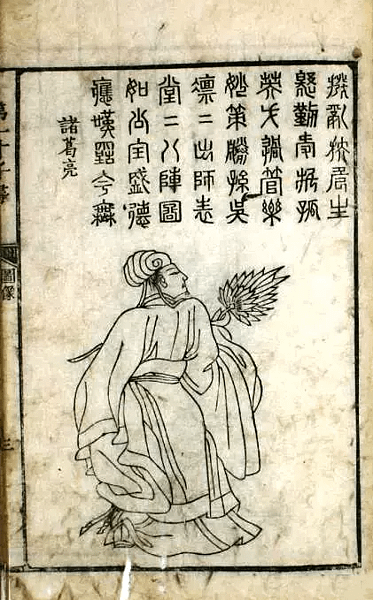 撥亂扶危主
慇勤受托孤
英才過管樂
妙策勝孫吳
凜二出師表
堂二八陣圖
如公全盛德
應嘆古今無
諸葛亮
第一才子書
圖像
三